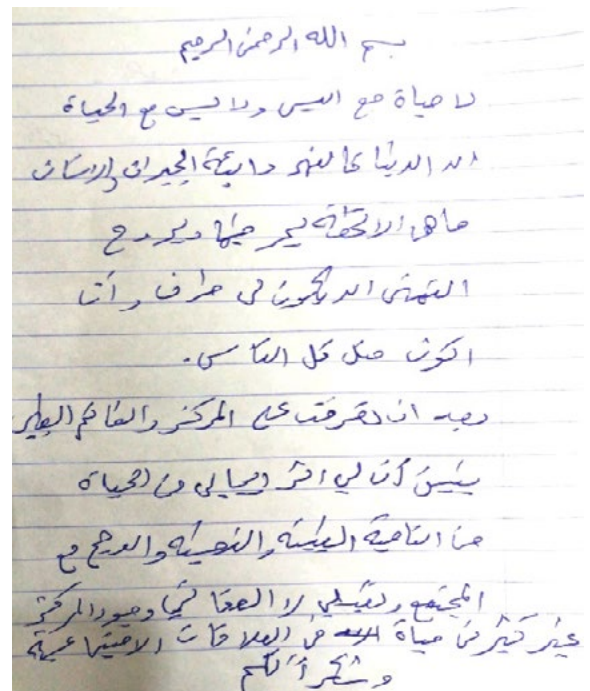 بسم الله الرحمن الرحيم
لا حياة مع اليس ولا ليس مع الحياة
ان الدنيا كالنهر دائمة الجريان والانسان
ما هي الا لحظة يسر فيها ويروح
اتمنى ان يكون لي طرف وأنا
اكون مثل كل الناس.
بعد ان تعرفت على المركز والطاقم
أن لي اثر ايجابي من الحياة
من الناحية الطبية والنفسية والدمج مع
المجتمع وتقبلي وجود المركز
غير كثير من حياة من العلاقات الاجتماعية
وشكراً لكم